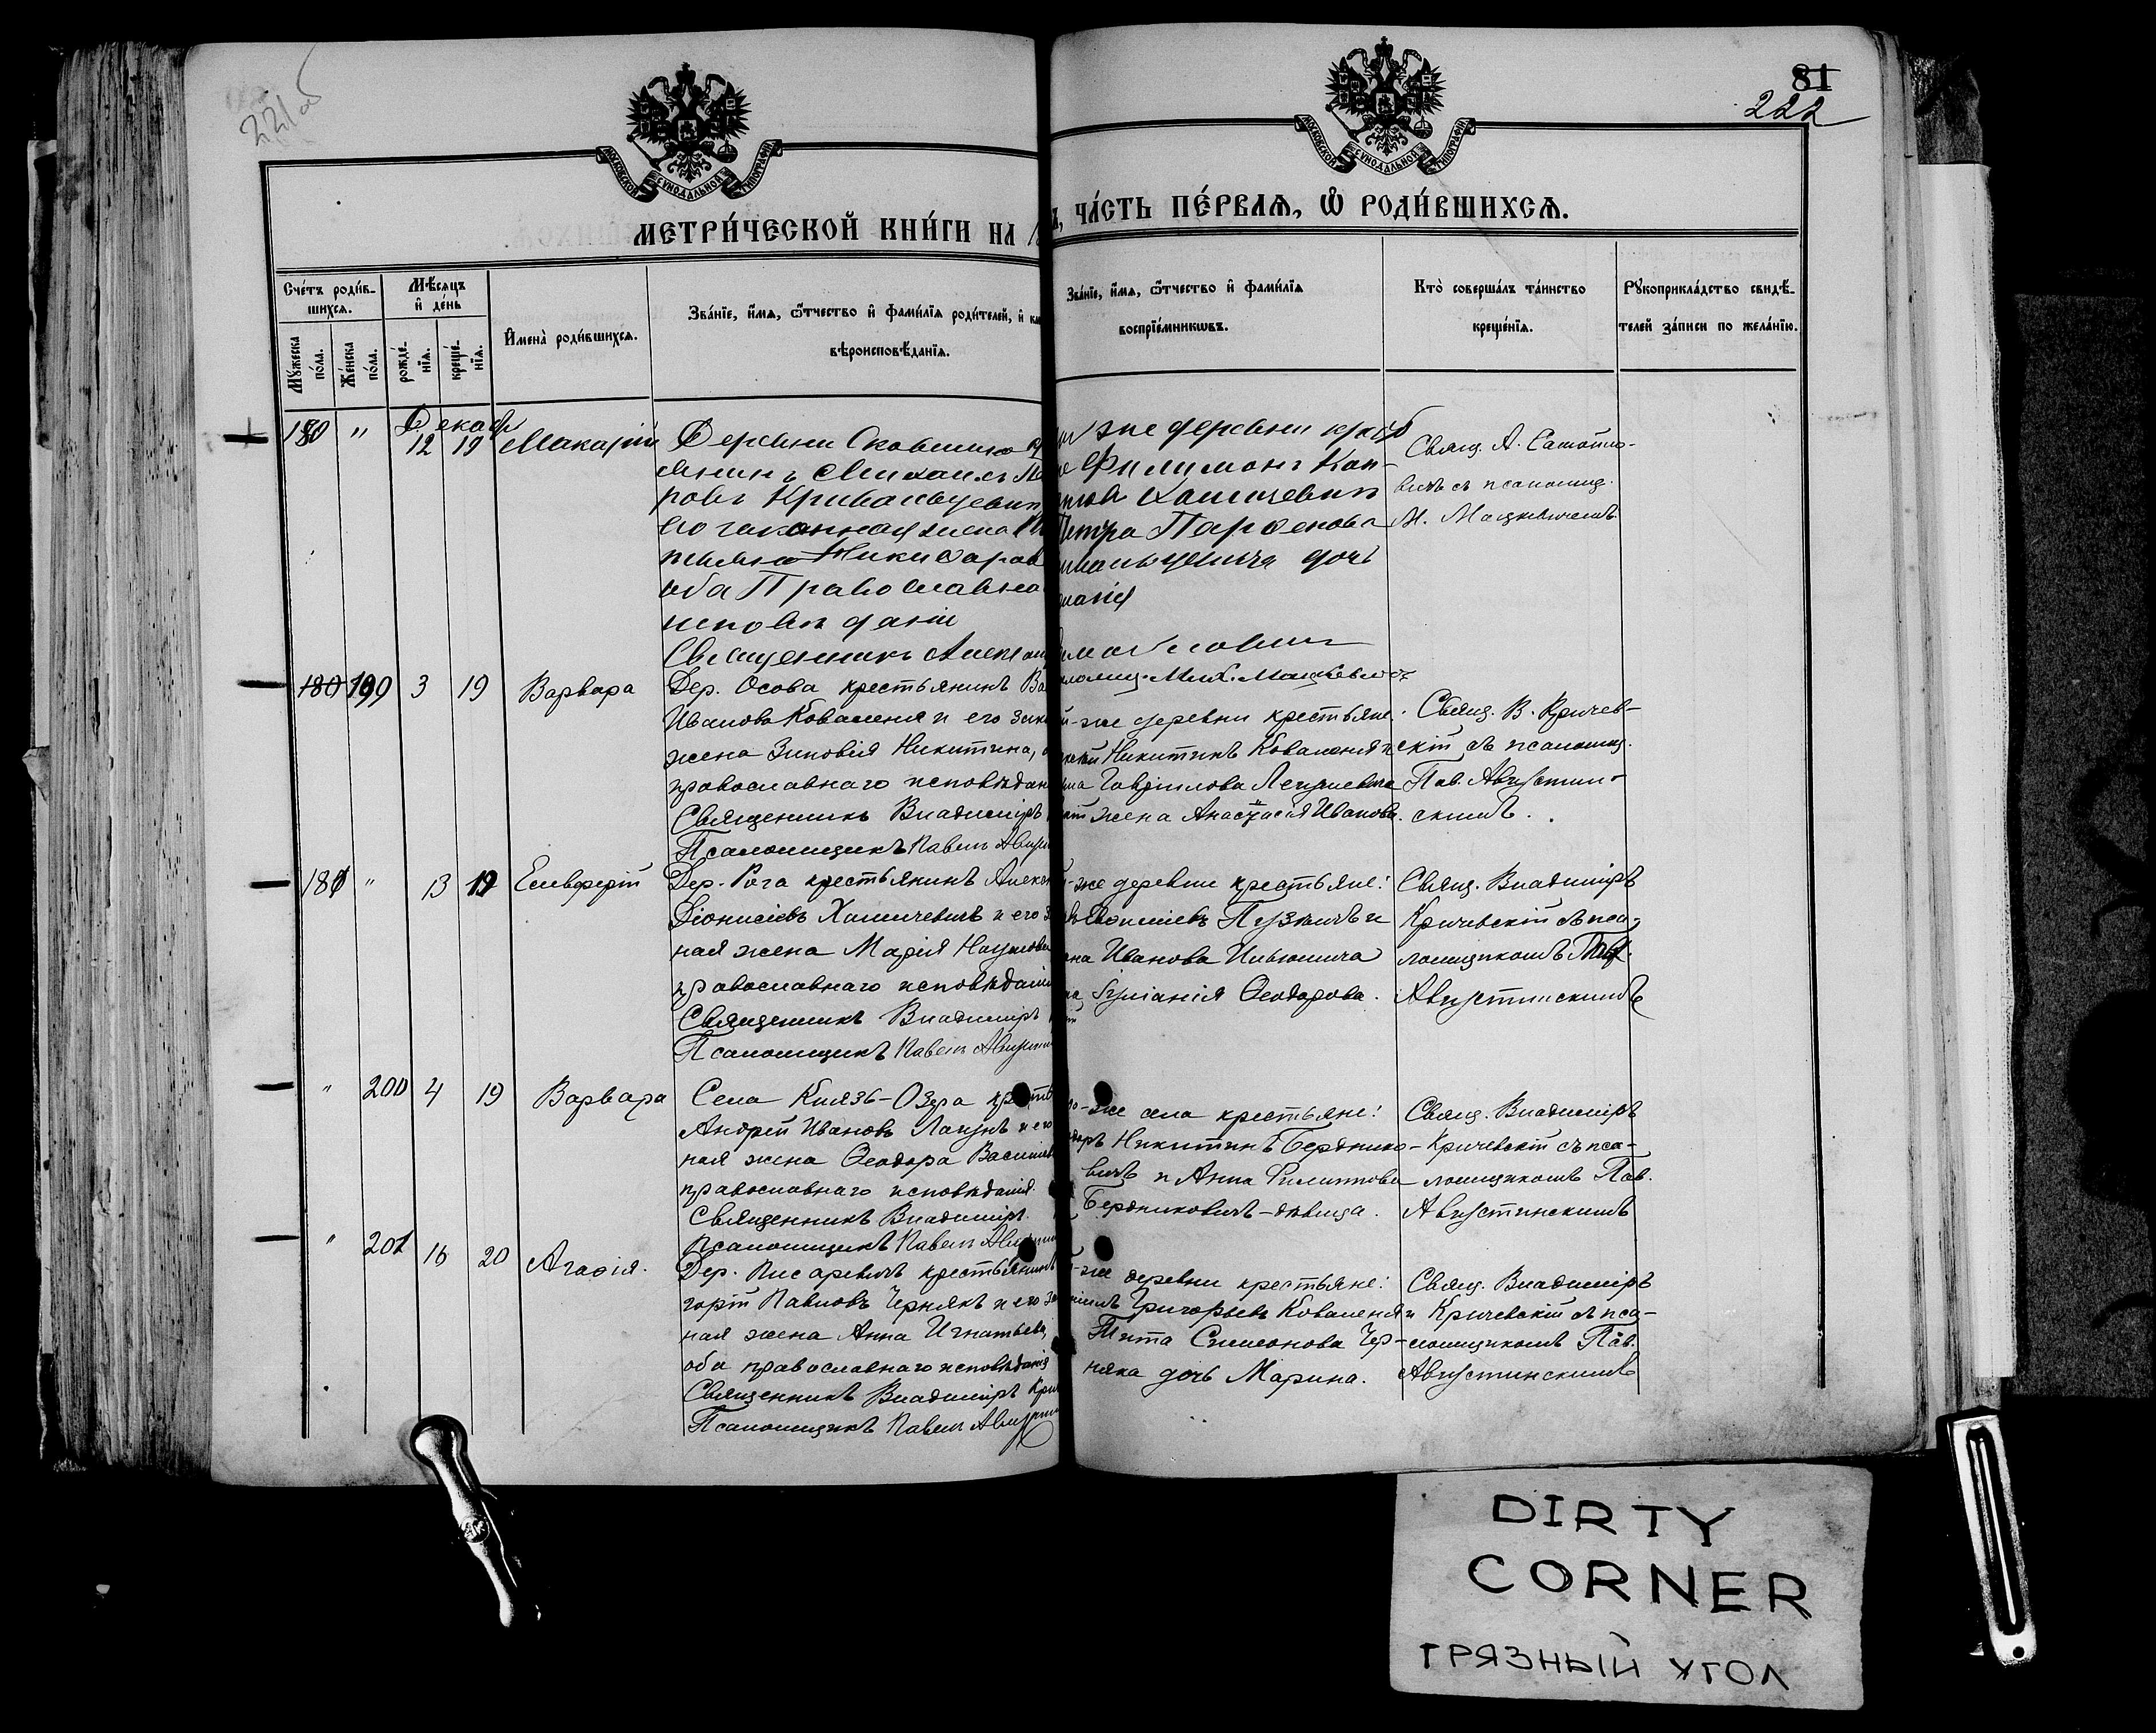 81
222
221об
МОСКОВСКОЙ СѴНОДАЛЬНОЙ ТИПОГРАФІИ
МОСКОВСКОЙ СѴНОДАЛЬНОЙ ТИПОГРАФІИ
МЕТРИ́ЧЕСКОЙ КНИ́ГИ НА 18
, ЧА́СТЬ ПЕ́РВАѦ, Ѡ҆ РОДИ́ВШИХСѦ.
Сче́тъ роди́в-
шихсѧ.
Мꙋ́жеска по́ла.
Же́нска по́ла.
Мѣ́сѧцъ и҆ де́нь
рожде́-нїѧ.
креще́-нїѧ.
И҆мена̀ роди́вшихсѧ.
Зва́нїе, и҆́мѧ, ѻ҆́тчество и҆ фами́лїѧ роди́телей, и҆
вѣроисповѣ́данїѧ.
Зва́нїе, и҆́мѧ, ѻ҆́тчество и҆ фами́лїѧ
воспрїе́мникѡвъ.
Кто̀ соверша́лъ та́инство
креще́нїѧ.
Рꙋкоприкла́дство свидѣ́-
телей за́писи по жела́нїю.
Декабр
180 " 12 19 Макарій
Деревни
янинъ Михаилъ
его законная жена
Никифоров
оба Православна
исповѣданія
Священникъ Александ
же деревни крес
Филимонъ Кон-
Хамицевич
Петра Парѳенова
дочь
Свящ. А. Самойло-
вичъ съ псаломщ.
М. Мацкевичемъ.
псаломщ. Мих. Мацкевичъ
180 199 3 19 Варвара
Дер. Осова крестьянинъ Ва
Иванова Коваленя и его зак
жена Зиновія Никитина, о
православнаго исповѣдан
Священникъ Владиміръ
Псаломщикъ Павелъ Авгус
-же деревни крестьяне:
Никитинъ Коваленя и
Гаврiилова
жена Анастасія Иванова.
Свящ. В. Кричев-
скій съ псаломщ.
Пав. Августин-
скимъ.
181 " 13 19 Елевферій
Дер. Рога крестьянинъ Алекс
Діонисіевъ Хамичевичъ и его з
ная жена Марія Наумова
православнаго исповѣданія
Священникъ Владиміръ
Псаломщикъ Павелъ Августи
-же деревни крестьяне:
и
Иванова
Іуліанія Ѳеодорова.
Свящ. Владиміръ
Кричевскій съ пса-
ломщикомъ Пав.
Августинскимъ
" 200 4 19 Варвара
Села Князь-Озера крестья
Андрей Ивановъ Лагунъ и его
ная жена Ѳеодора Василіев
православнаго исповѣданія.
Священникъ Владиміръ
Псаломщикъ Павелъ Августин
-же села крестьяне:
Никитинъ Бердннко-
вичъ и Анна Филиппова
Бердниковичъ-дѣвица.
Свящ. Владиміръ
Кричевскій съ пса-
ломщикомъ Пав.
Августинскимъ
" 201 16 20 Агаѳія.
Дер. Писаревичъ крестьянинъ
горій Павловъ Чернякъ и его за
ная жена Анна Игнатьева,
оба православнаго исповѣданія
Священникъ Владиміръ Кри
Псаломщикъ Павелъ Августин
-же деревни крестьяне:
Григорьевъ Коваленя и
Тита Симеонова Чер-
няка дочь Марина.
Свящ. Владиміръ
Кричевскій съ пса-
ломщикомъ Пав.
Августинскимъ
DIRTY
CORNER
ГРЯЗНЫЙ УГОЛ